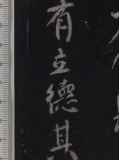 有立德其